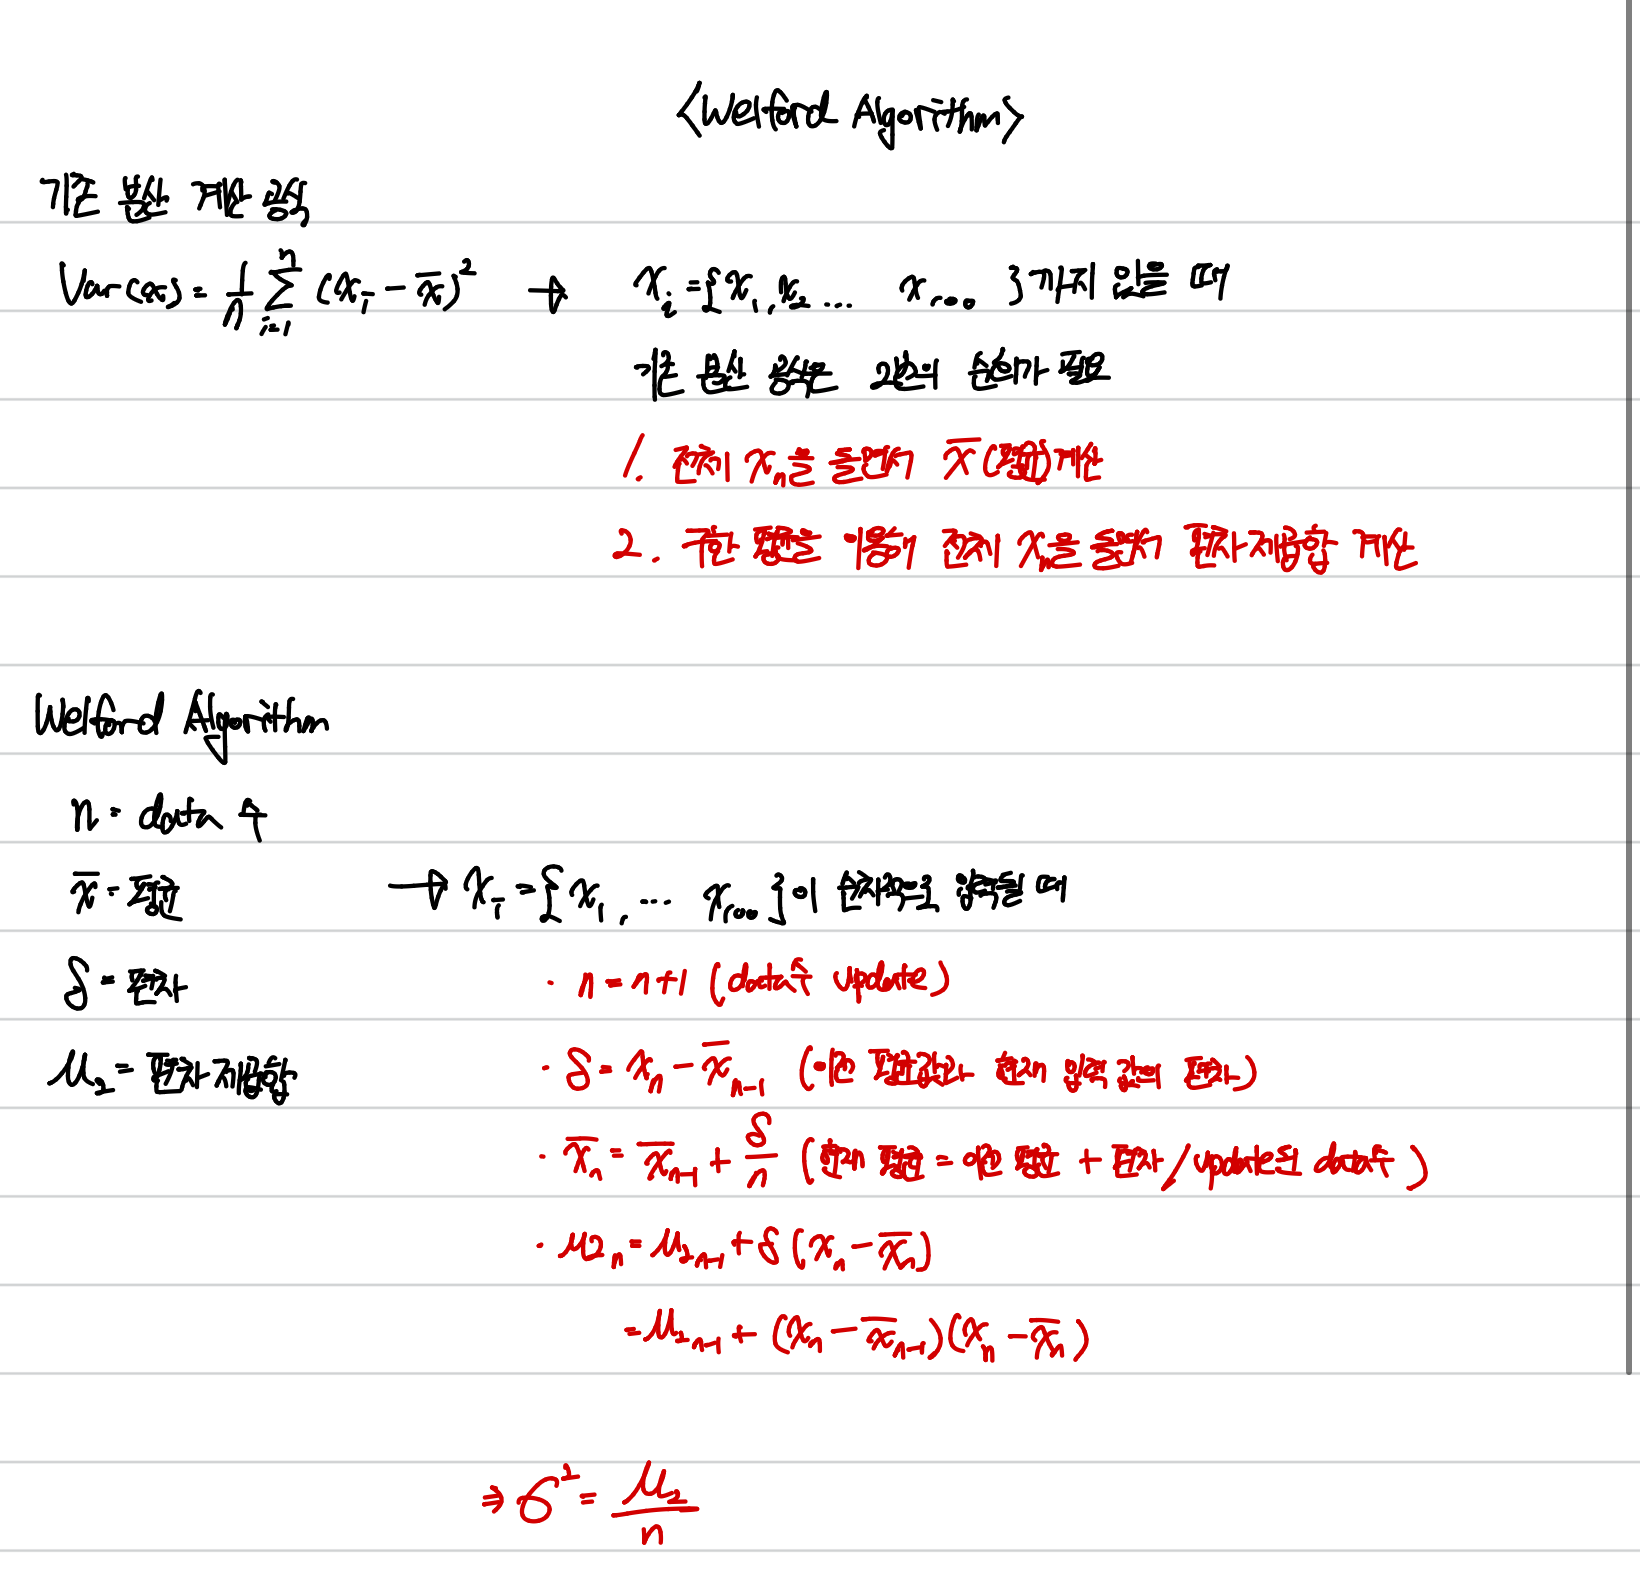 <Welford Algorithm>
기존 분산 계산 공식
Var(x) = 1/n ∑_{i=1}^{n} (x_i - x̄)² → x_i = {x_1, x_2 ... x_100 } 까지 있을 때
기존 분산 공식은 2번의 순회가 필요
1. 전체 x_n을 돌면서 x̄ (평균) 계산
2. 구한 평균을 이용해 전체 x_n을 돌면서 편차제곱합 계산
Welford Algorithm
n = data 수
x̄ = 평균 → x_i = {x_1, ... x_100}이 순차적으로 입력될 때
δ = 편차 · n = n+1 (data수 update)
M_2 = 편차제곱합 · δ = x_n - x̄_{n-1} (이전 평균값과 현재 입력 값의 편차)
· x̄_n = x̄_{n-1} + δ/n (현재 평균 = 이전 평균 + 편차/update된 data수)
· M2_n = M_{2_{n-1}} + δ(x_n - x̄_n)
= M_{2_{n-1}} + (x_n - x̄_{n-1})(x_n - x̄_n)
⇒ σ² = M_2/n